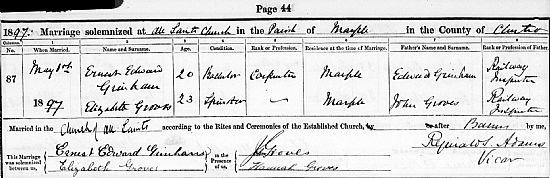 Page 44
1897. Marriage solemnized at All Saints Church in the Parish of Marple in the County of Chester
No. When Married. Name and Surname. Age. Condition. Rank or Profession. Residence at the time of Marriage. Father's Name and Surname. Rank or Profession of Father.
87 May 1st 1897 Ernest Edward Grinham 20 Bachelor Carpenter Marple Edward Grinham Railway Inspector
Elizabeth Groves 23 Spinster — Marple John Groves Railway Inspector
Married in the Church of All Saints according to the Rites and Ceremonies of the Established Church, by after Banns
This Marriage was solemnized between us, Ernest Edward Grinham Elizabeth Groves in the Presence of us, J Groves Hannah Groves Reginald S. Adams Vicar